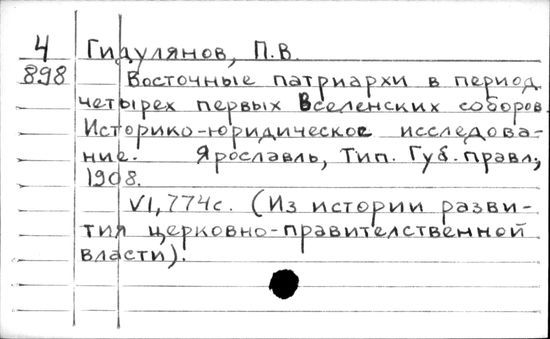 4 Гидулянов, П.В.
898 Восточные патриархи в период
четырех первых Вселенских соборов.
Историко-юридическое исследова-
ние. Ярославль, Тип. Губ. правл.,
1908.
VI, 774с. (Из истории разви-
тия церковно-правителственной
власти).